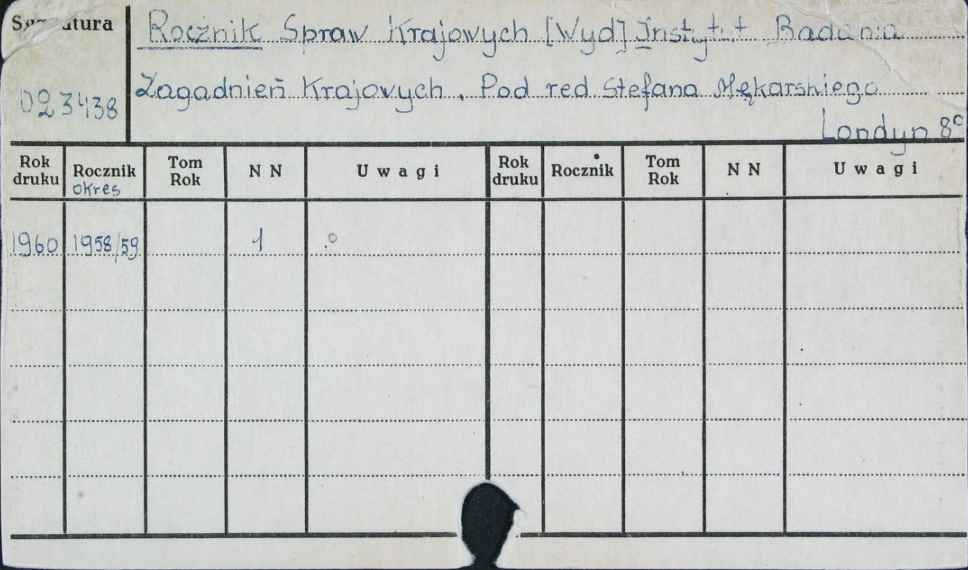 Sygnatura
Rocznik Spraw Krajowych [Wyd] Instytut Badania
023438
Zagadnień Krajowych. Pod red Stefana Mękarskiego
Londyn 8°
Rok druku Rocznik okres Tom Rok N N Uwagi Rok druku Rocznik Tom Rok N N Uwagi
1960 1958/59 1